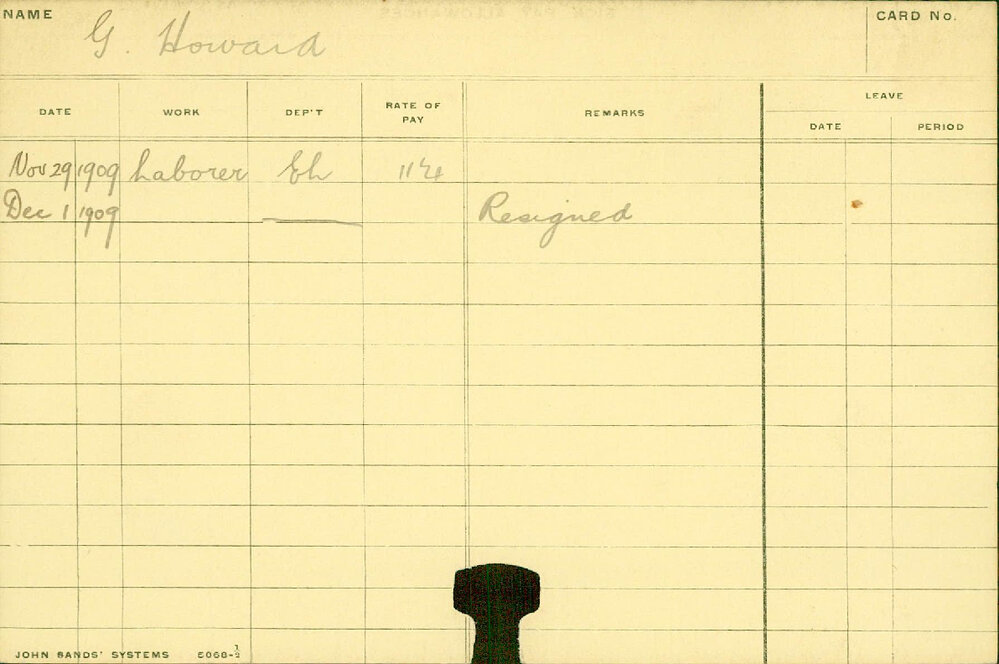 NAME G. Howard CARD No.
DATE WORK DEP'T RATE OF PAY REMARKS LEAVE
DATE PERIOD
Nov 29 1909 Laborer Eh
Dec 1 1909 Resigned
JOHN SANDS' SYSTEMS